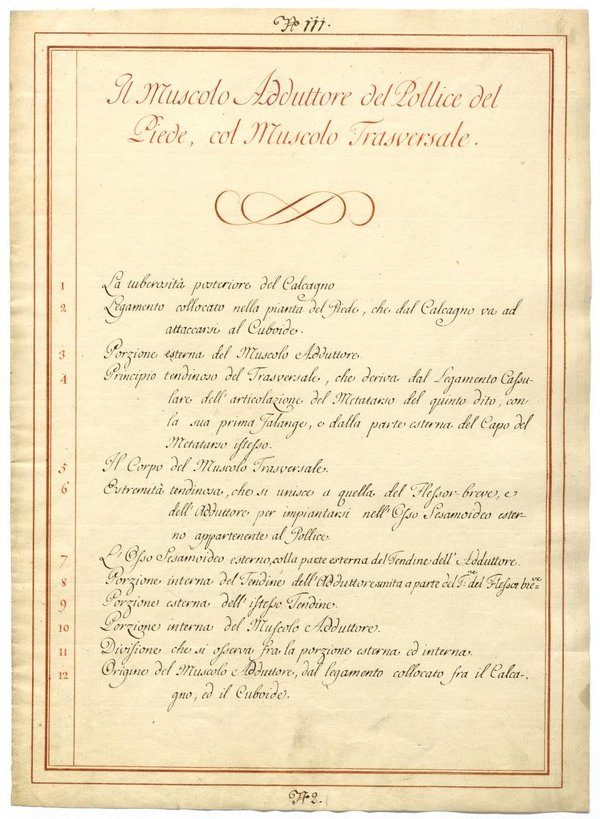 Nº III.
Il Muscolo Adduttore del Pollice del
Piede, col Muscolo Trasversale.
1 La tuberosità posteriore del Calcagno
2 Legamento collocato nella pianta del Piede, che dal Calcagno va ad
attaccarsi al Cuboide.
3 Porzione esterna del Muscolo Adduttore.
4 Principio tendinoso del Trasversale, che deriva dal Legamento Cassu-
lare dell'articolazione del Metatarso del quinto dito, con
la sua prima Falange, e dalla parte esterna del Capo del
Metatarso istesso.
5 Il Corpo del Muscolo Trasversale.
6 Estremità tendinosa, che si unisce a quella del Flessor breve, e
dell'Adduttore per impiantarsi nell'Osso Sesamoideo ester-
no appartenente al Pollice.
7 L'Osso Sesamoideo esterno, colla parte esterna del Tendine dell'Adduttore.
8 Porzione interna del Tendine dell'Adduttore unita a parte del T.ne del Flessor bre-ve
9 Porzione esterna dell'istesso Tendine.
10 Porzione interna del Muscolo Adduttore.
11 Divisione che si osserva fra la porzione esterna ed interna.
12 Origine del Muscolo Adduttore, dal legamento collocato fra il Calca-
gno, ed il Cuboide.
Nº 2.